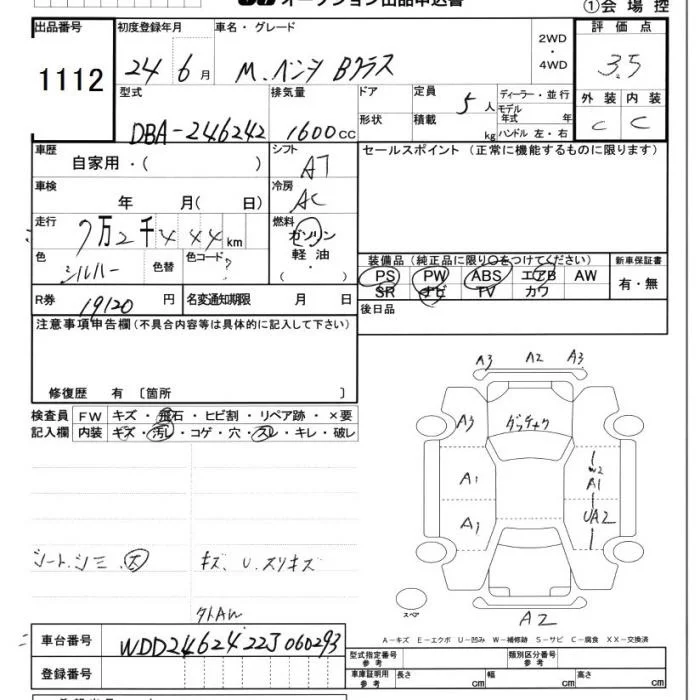 オークション出品申込書
①会場控
出品番号 初度登録年月 車名・グレード 2WD・4WD 評価点
1112 24 6月 M.ベンツ Bクラス 3.5
型式 排気量 ドア 定員 ディーラー・並行 外装 内装
DBA-246242 1600cc 5人 モデル年式 年 C C
形状 積載 kg ハンドル 左・右
車歴 シフト セールスポイント (正常に機能するものに限ります)
自家用・( ) AT
車検 冷房
年 月( 日) AC
走行 燃料
7万2千444km ガソリン
軽油・( )
色 色替 色コード
シルバー ?
装備品(純正品に限り○をつけてください) 新車保証書
PS PW ABS エアB AW 有・無
SR ナビ TV カワ
R券 19120円 名変通知期限 月 日
後日品
注意事項申告欄(不具合内容等は具体的に記入して下さい)
修復歴 有 〔箇所 〕
検査員記入欄 FW キズ・飛石・ヒビ割・リペア跡・×要
内装 キズ・汚レ・コゲ・穴・スレ・キレ・破レ
A3 A2 A3
A3
A1 W2
A1
A1 UA2
シート.シミ.大 キズ、U.スリキズ
スペア
A2
A-キズ E-エクボ U-凹み W-補修跡 S-サビ C-腐食 XX-交換済
車台番号 WDD2462422J060293
型式指定番号 参考 類別区分番号 参考
登録番号 車庫証明用 参考 長さ cm 幅 cm 高さ cm